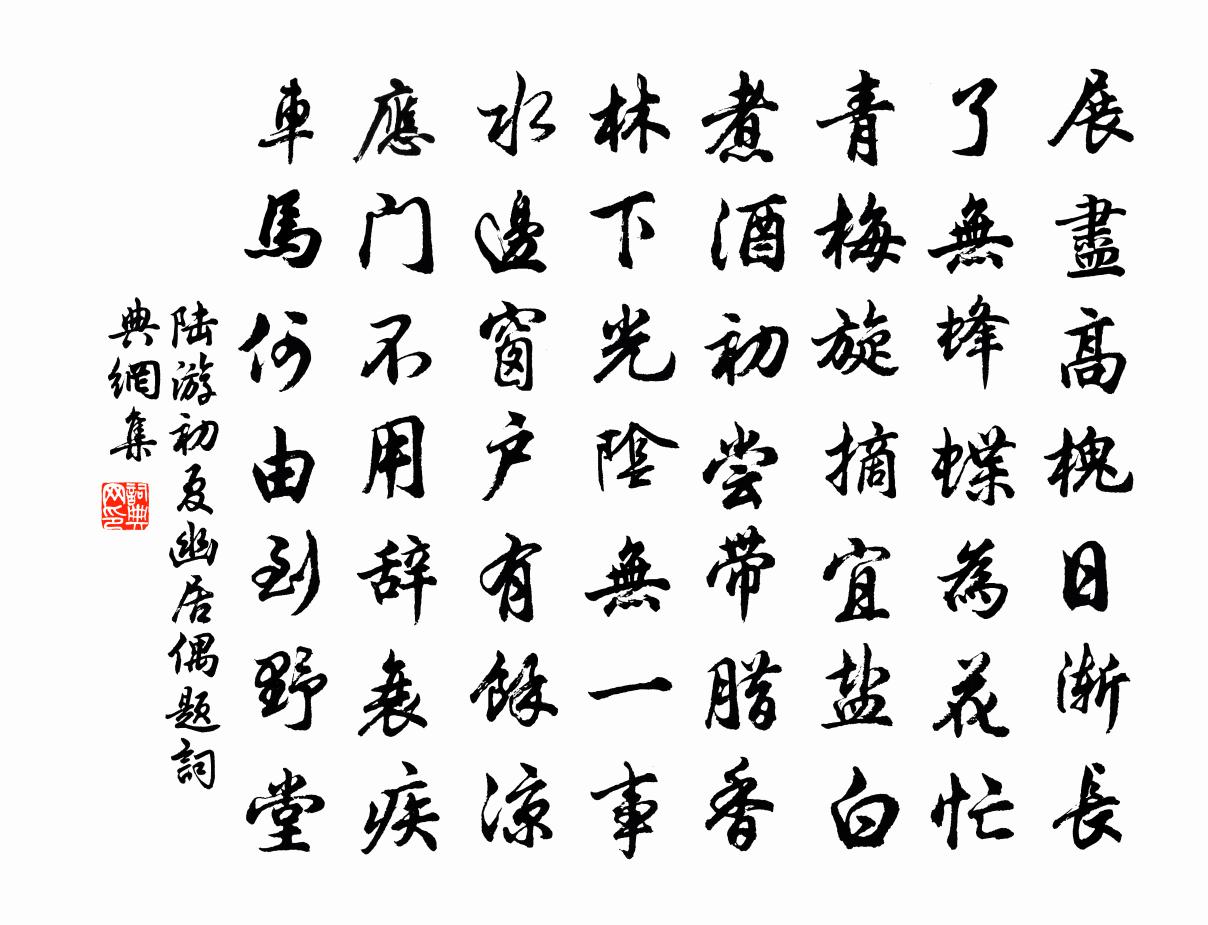 展盡高槐日漸長
了無蜂蝶為花忙
青梅旋摘宜盐白
煮酒初尝带腊香
林下光陰無一事
水邊窗户有餘涼
應门不用辞衰疾
車馬何由到野堂
陆游初夏幽居偶题詞
典網集
詞典
网印